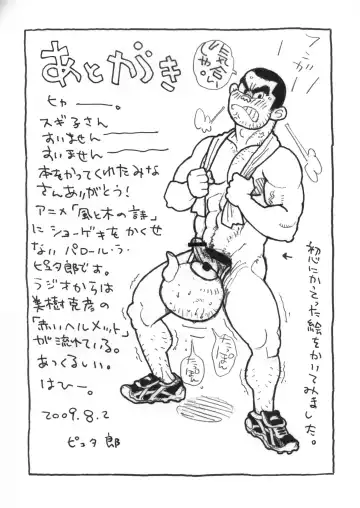 あとがき
ヒャーーー。
スギ子さん
すいません
すいません
本をかってくれたみな
さんありがとう！
アニメ「風と木の詩」
にショーゲキをかくせ
ないパロール・ラ・
ピュタ郎です。
ラジオからは
美樹克彦の
「赤いヘルメット」
が流れている。
あっくるしい。
はひー。
2009.8.2
ピュタ郎
気合い
じゃい
フンガー
初心にかえった絵をかいてみました。
たっぷん
たっぽん